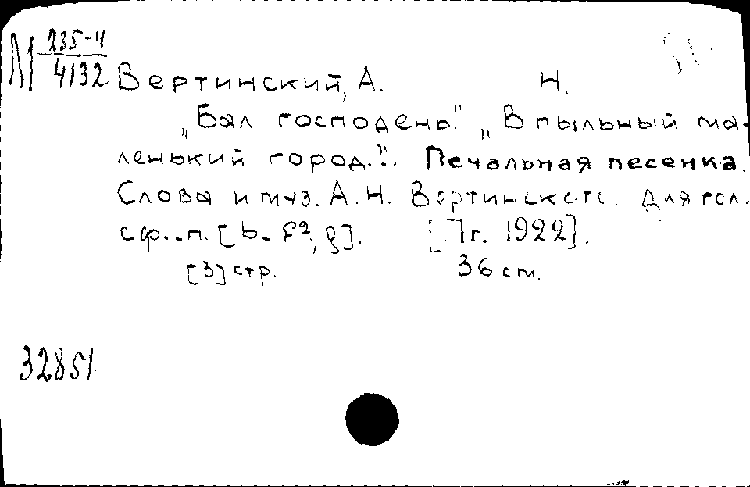 М 235-4
4132
Вертинский, А. Н.
„Бал господень". „В пыльный ма-
ленький город..". Печальная песенка.
Слова и муз. А. Н. Вертинского. Для гол.
с ф.-п. [b.-f², g]. 1922].
[3] стр. 36 см.
32851